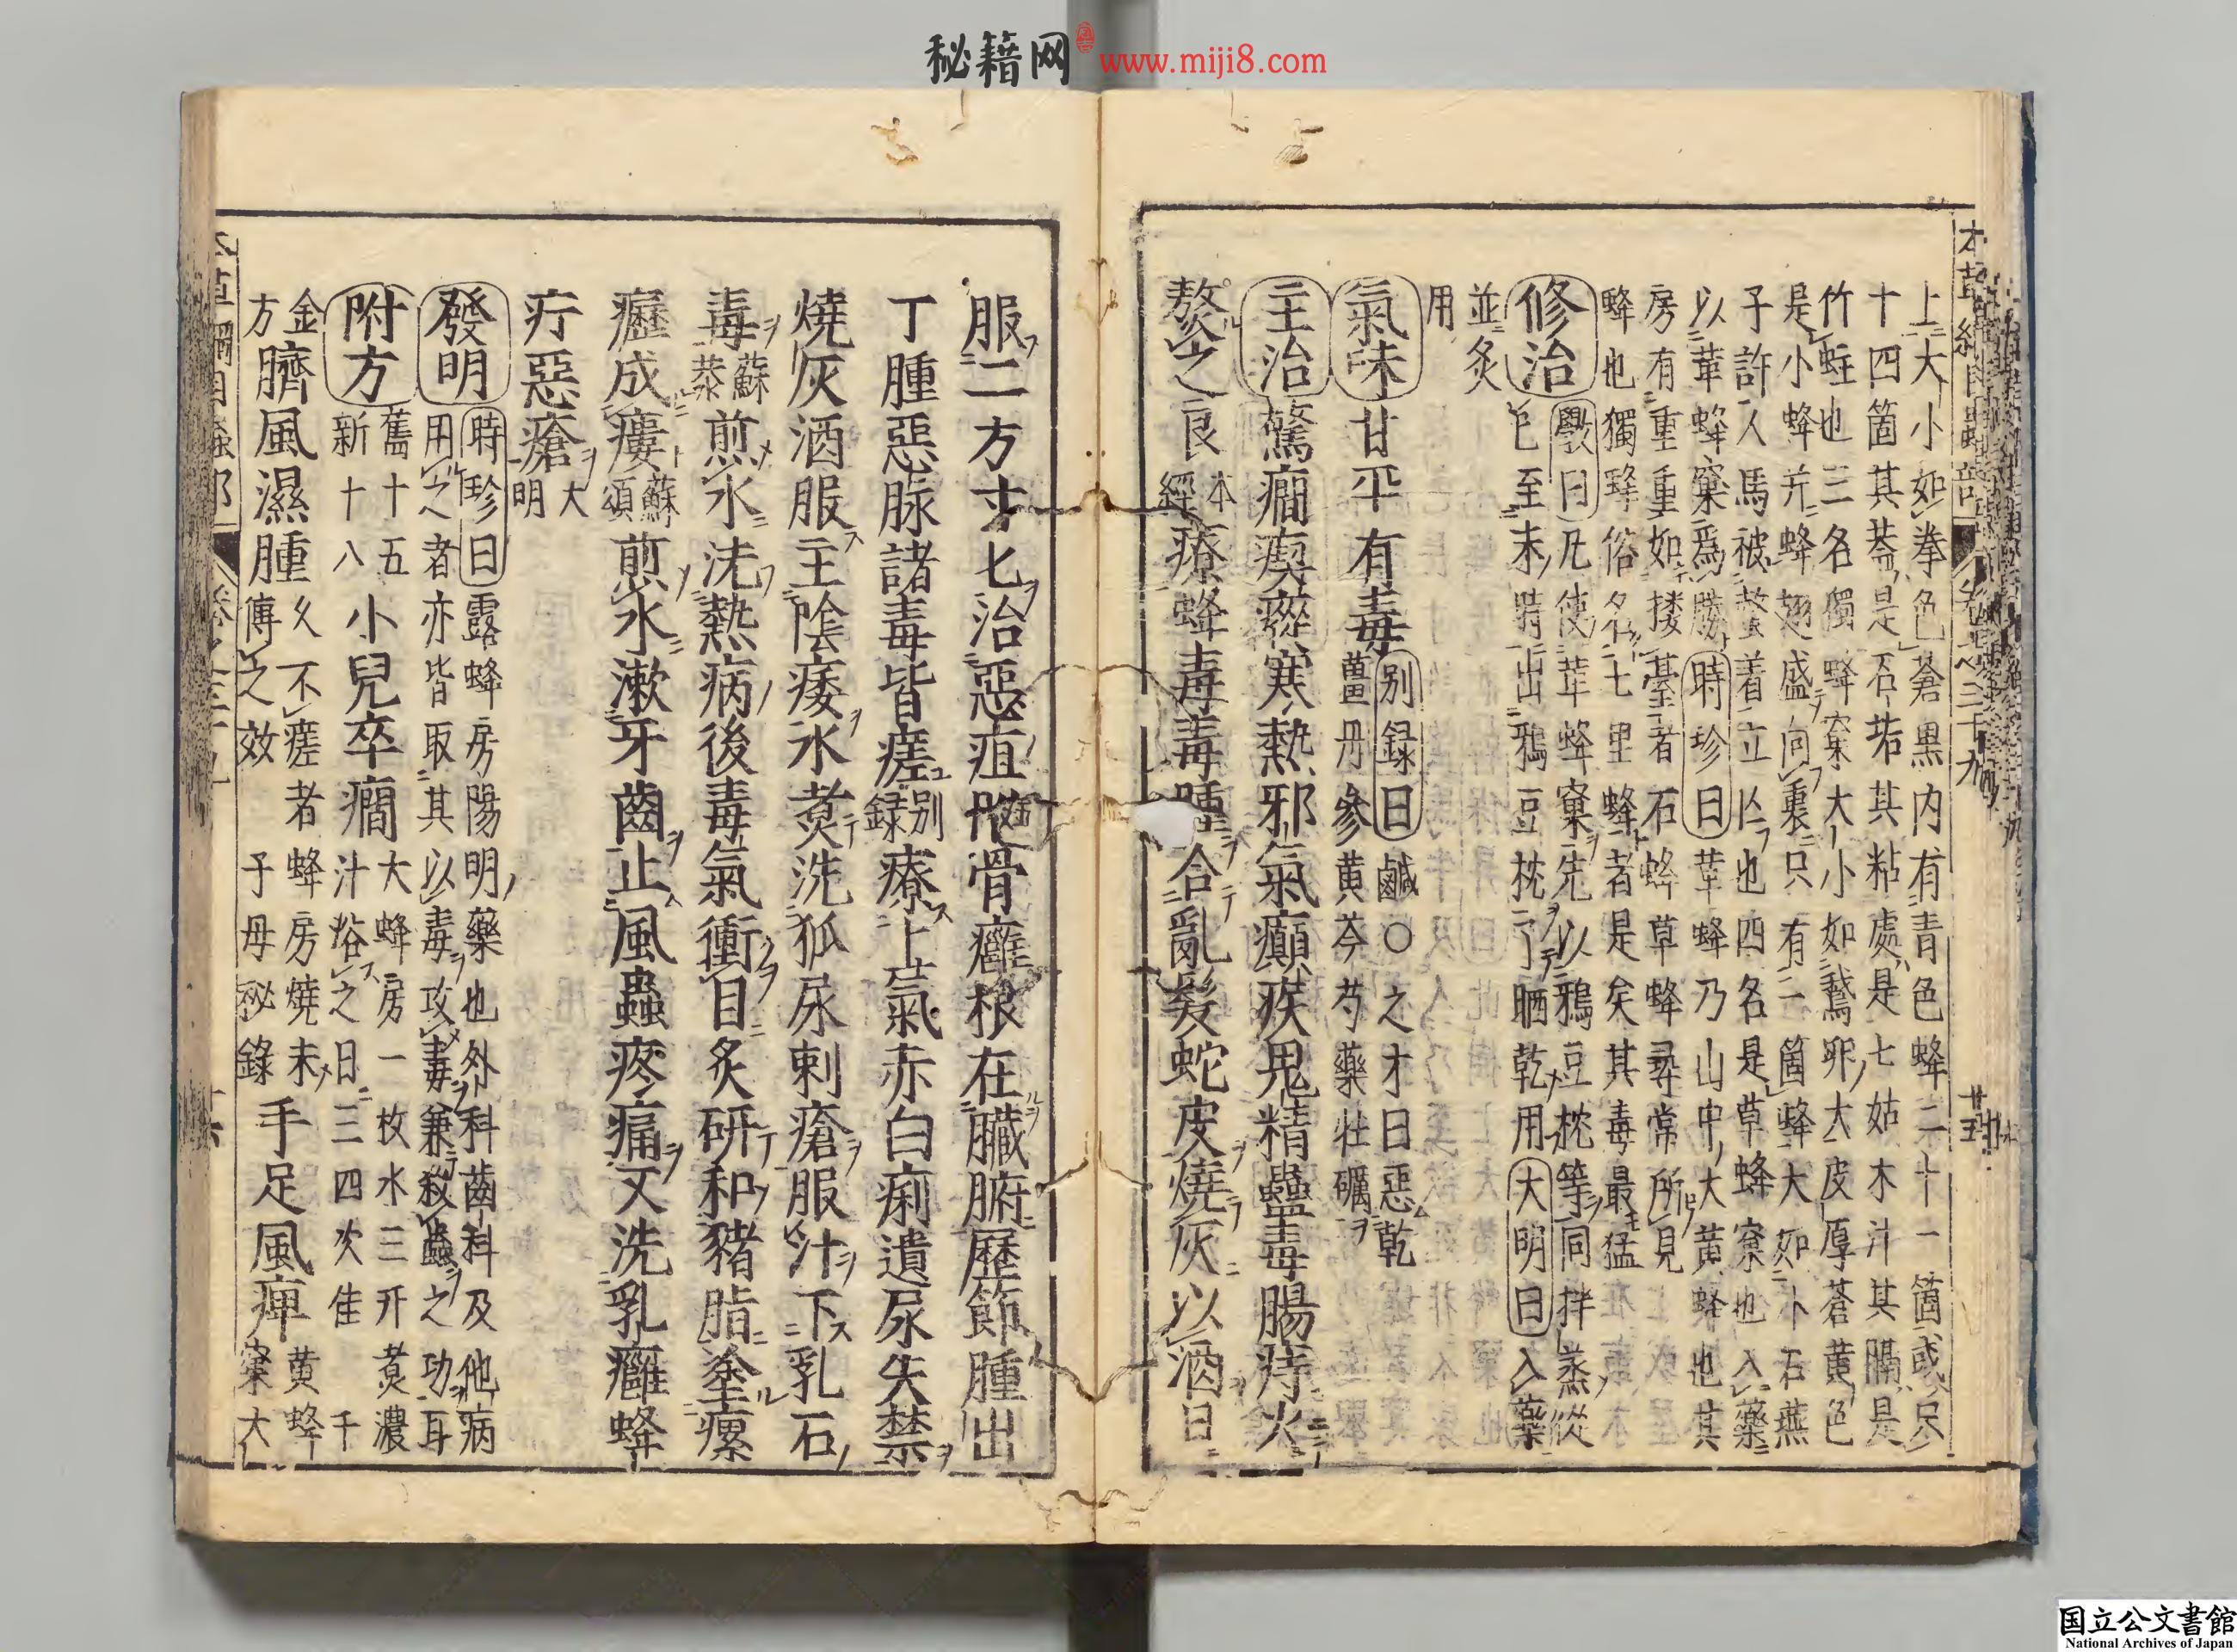 秘籍网 www.miji8.com
上大小如拳色蒼黒内有青色蜂二十一箇或只
十四箇其葢是石垢其粘處是七姑木汁其隔是
竹蛀也三名獨蜂窠大小如鵞卵大皮厚蒼黄色
是小蜂并蜂翅盛向裏只有一箇蜂大如小石燕
子許人馬被螫着立亾也四名是草蜂窠也入藥
以革蜂窠爲勝時珍曰革蜂乃山中大黄蜂也其
房有重重如樓臺者石蜂草蜂尋常所見
蜂也獨蜂俗名七里蜂者是矣其毒最猛
修治
斅曰凡使革蜂窠先以鴉豆枕等同拌蒸從
巳至未時出鴉豆枕了晒乾用大明曰入藥
並炙
用
氣味甘平有毒
别録曰鹹○之才曰惡乾
薑丹參黄芩芍藥牡礪
主治驚癇瘈瘲寒熱邪氣癲疾鬼精蠱毒腸痔火
熬之良本經療蜂毒毒腫合亂髮蛇皮燒灰以酒日
服二方寸匕治惡疽附骨癰根在臓腑歷節腫出
丁腫惡脉諸毒皆瘥别録療上氣赤白痢遺尿失禁
燒灰酒服主陰痿水煑洗狐尿刺瘡服汁下乳石
毒蘇恭煎水洗熱病後毒氣衝目炙研和豬脂塗瘰
癧成瘻蘇頌煎水漱牙齒止風蟲疼痛又洗乳癰蜂
疔惡瘡大明
發明
時珍曰露蜂房陽明藥也外科齒科及他病
用之者亦皆取其以毒攻毒兼殺蟲之功耳
附方
舊十五
新十八
小兒卒癇大蜂房一枚水三升煑濃
汁浴之日三四次佳千
金
方
臍風濕腫
久不瘥者蜂房燒末
傅之效子母秘錄
手足風痺
黄蜂
窠大
国立公文書館
National Archives of Japan